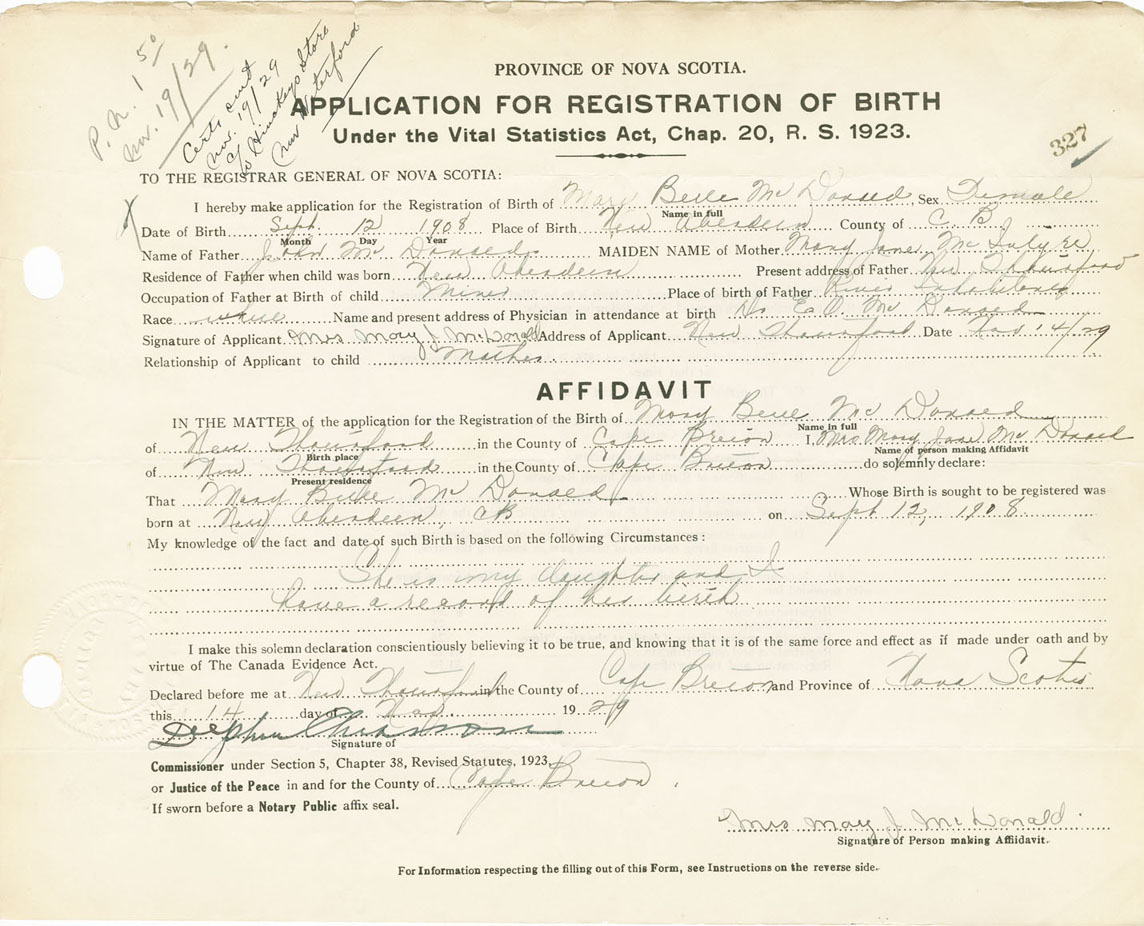 P. N. 1 50
Nov. 19/29.
Certs sent
Nov. 19/29
c/o Hinckeys Store
New Waterford
PROVINCE OF NOVA SCOTIA.
APPLICATION FOR REGISTRATION OF BIRTH
Under the Vital Statistics Act, Chap. 20, R. S. 1923.
327
TO THE REGISTRAR GENERAL OF NOVA SCOTIA:
I hereby make application for the Registration of Birth of Mary Belle Mc Donald, Sex Female
Name in full
Date of Birth Sept. 12 1908 Place of Birth New Aberdeen County of C. B.
Month Day Year
Name of Father John Mc Donald MAIDEN NAME of Mother Mary Jane
Residence of Father when child was born New Aberdeen Present address of Father New
Occupation of Father at Birth of child Miner Place of birth of Father River
Race white Name and present address of Physician in attendance at birth Dr. Mc Donald
Signature of Applicant Mrs. Mary J. McDonald Address of Applicant New Date Nov. 14/29
Relationship of Applicant to child Mother
AFFIDAVIT
IN THE MATTER of the application for the Registration of the Birth of Mary Belle Mc Donald
Name in full
of New in the County of Cape Breton I, Mrs Mary Jane Mc Donald
Birth place Name of person making Affidavit
of New in the County of Cape Breton do solemnly declare:
Present residence
That Mary Belle Mc Donald Whose Birth is sought to be registered was
born at New Aberdeen, CB on Sept 12, 1908
My knowledge of the fact and date of such Birth is based on the following Circumstances:
She is my daughter and I
have a record of her birth
I make this solemn declaration conscientiously believing it to be true, and knowing that it is of the same force and effect as if made under oath and by
virtue of The Canada Evidence Act.
Declared before me at New in the County of Cape Breton and Province of Nova Scotia
this 14 day of Nov. 1929
Signature of
Commissioner under Section 5, Chapter 38, Revised Statutes, 1923,
or Justice of the Peace in and for the County of Cape Breton
If sworn before a Notary Public affix seal.
Mrs Mary J. McDonald.
Signature of Person making Affidavit.
For Information respecting the filling out of this Form, see Instructions on the reverse side.